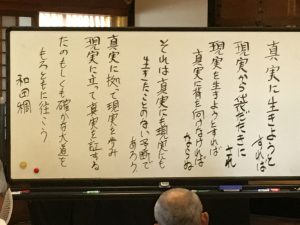 真実に生きようと
すれば
現実から遊びたきに
され
現実を生きようとすれば
真実に背を向けなければ
ならぬ
それは真実にも現実にも
生きたことのない予断で
あろう
真実に拠って現実を歩み
現実に立って真実を証する
たのもしくも確かな大道を
もろともに往こう
和田稠